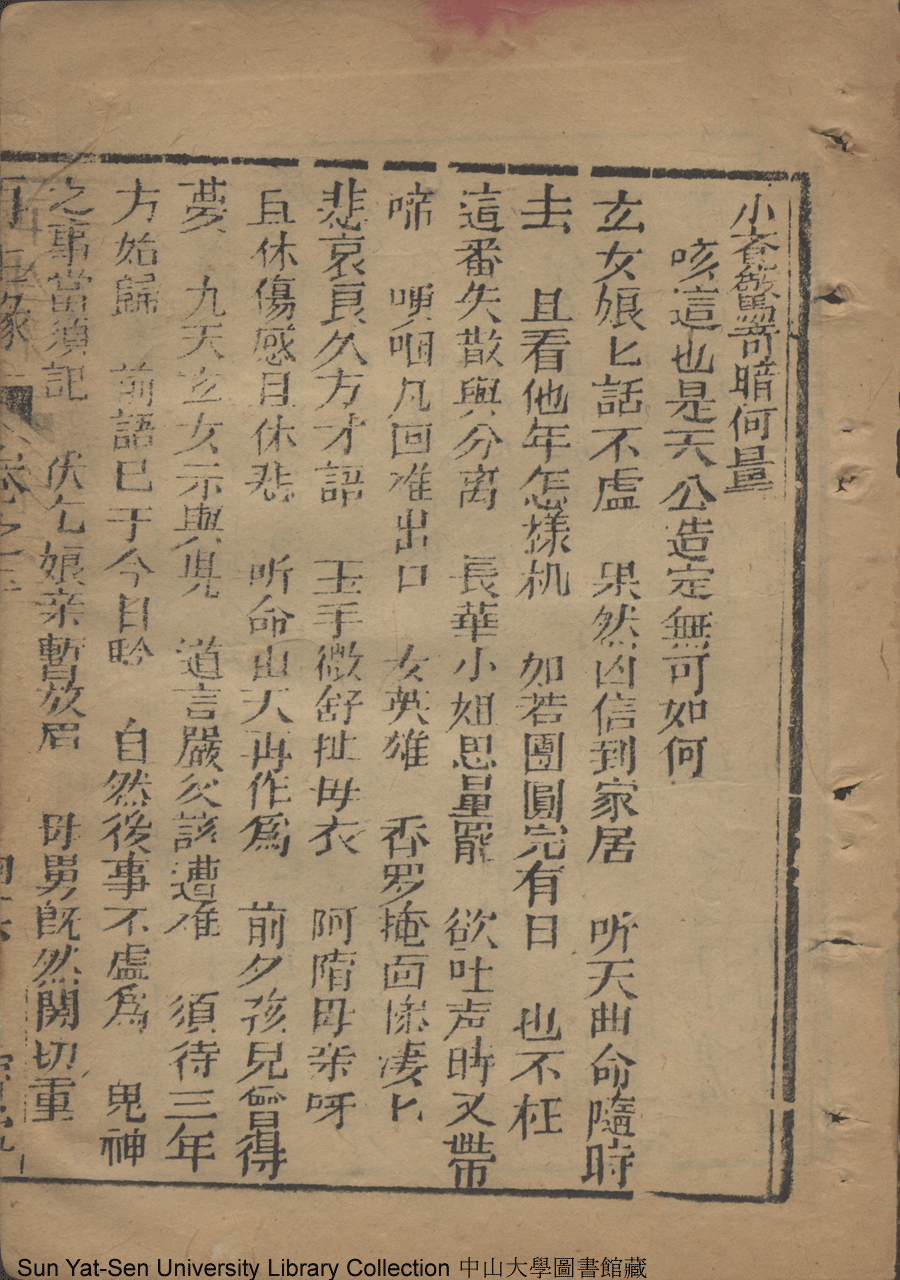 小斉驚竒暗何量
咳這也是天公造定無可如何
玄女娘匕話不虛　果然凶信到家居　听天由命隨時
去　且看他年怎樣机　如若團圓完有日　也不枉
這番失散與分离　長華小姐思量罷　欲吐声時又帶
啼　哽咽几回难出口　女英雄　香罗掩面慘凄匕
悲哀良久方才語　玉手微舒扯毋衣　阿隋毋亲呀
且休傷感且休悲　听命由天再作爲　前夕孩兒曾得
夢　九天玄女示與児　道言嚴父該遭难　須待三年
方始歸　前語已于今日聁　自然後事不虛爲　鬼神
之事當須記　伏乞娘亲暫放眉　毋舅既然関切重
卷之三
Sun Yat-Sen University Library Collection 中山大學圖書館藏